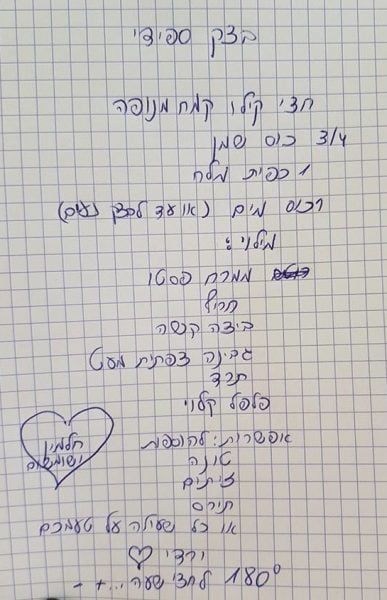 בצק ספידי
חצי קילו קמח מנופה
3/4 כוס שמן
1 כפית מלח
וכוס מים (או עד לבצק נעים)
מילוי:
ממרח פסטו
חריף
ביצה קשה
גבינה צפתית מעט
תרד
פלפל קלוי
אפשרות: להוספת
טונה
זיתים
תירס
או כל שעולה על טעמכם
ורדי ♡
180° לחצי שעה...+-
חלמון
ושומשום